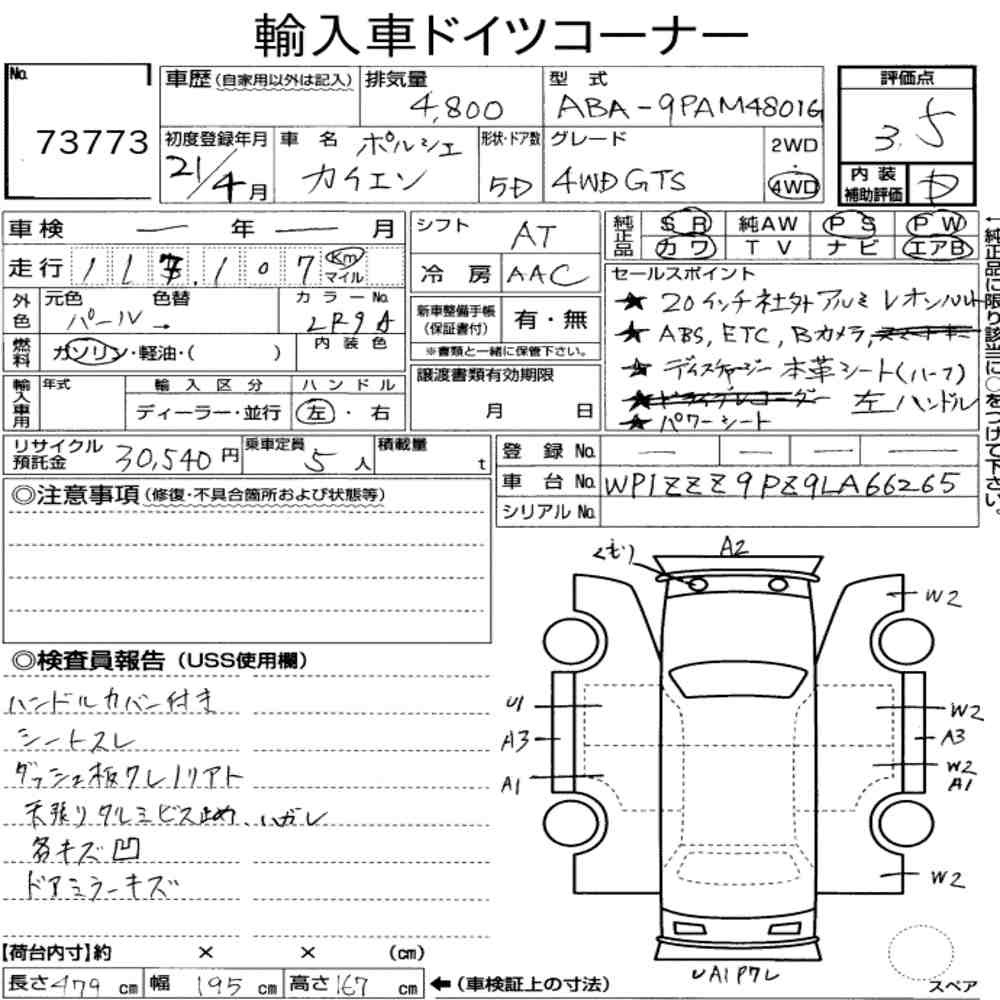 輸入車ドイツコーナー
No. 73773
車歴(自家用以外は記入) 排気量 4,800 型式 ABA-9PAM4801G 評価点 3.5
初度登録年月 21/4月 車名 ポルシェ カイエン 形状・ドア数 5D グレード 4WD GTS 2WD・4WD 内装補助評価 D
車検 ー 年 ー 月 シフト AT 純正品 SR 純AW PS PW
カワ TV ナビ エアB
走行 107 Km マイル 冷房 AAC セールスポイント
外色 元色 パール → 色替 カラーNo. LR9A 内装色 新車整備手帳(保証書付) 有・無
★ 20インチ社外アルミ レオンハルト
※書類と一緒に保管下さい。
★ ABS, ETC, Bカメラ,
燃料 ガソリン・軽油・( )
★ ディスチャージ 本革シート(ハーフ)
輸入車用 年式 輸入区分 ディーラー・並行 ハンドル 左・右 譲渡書類有効期限 月 日
★ 左ハンドル
★ パワーシート
←純正品に限り該当に○をつけて下さい。
リサイクル預託金 30,540円 乗車定員 5人 積載量 t 登録No. ー ー ー ー
車台No. WP1ZZZ9PZ9LA66265
シリアルNo.
◎注意事項(修復・不具合箇所および状態等)
◎検査員報告(USS使用欄)
ハンドルカバー付き
シートスレ
ダッシュ板ワレ / リアト
天張りタルミビス止め、ハガレ
各キズ凹
ドアミラーキズ
くもり A2
W2
U1 W2
A3 A3
A1 W2
A1
W2
UA1Pワレ
スペア
【荷台内寸】約 × × (cm)
長さ479cm 幅195cm 高さ167cm ←(車検証上の寸法)